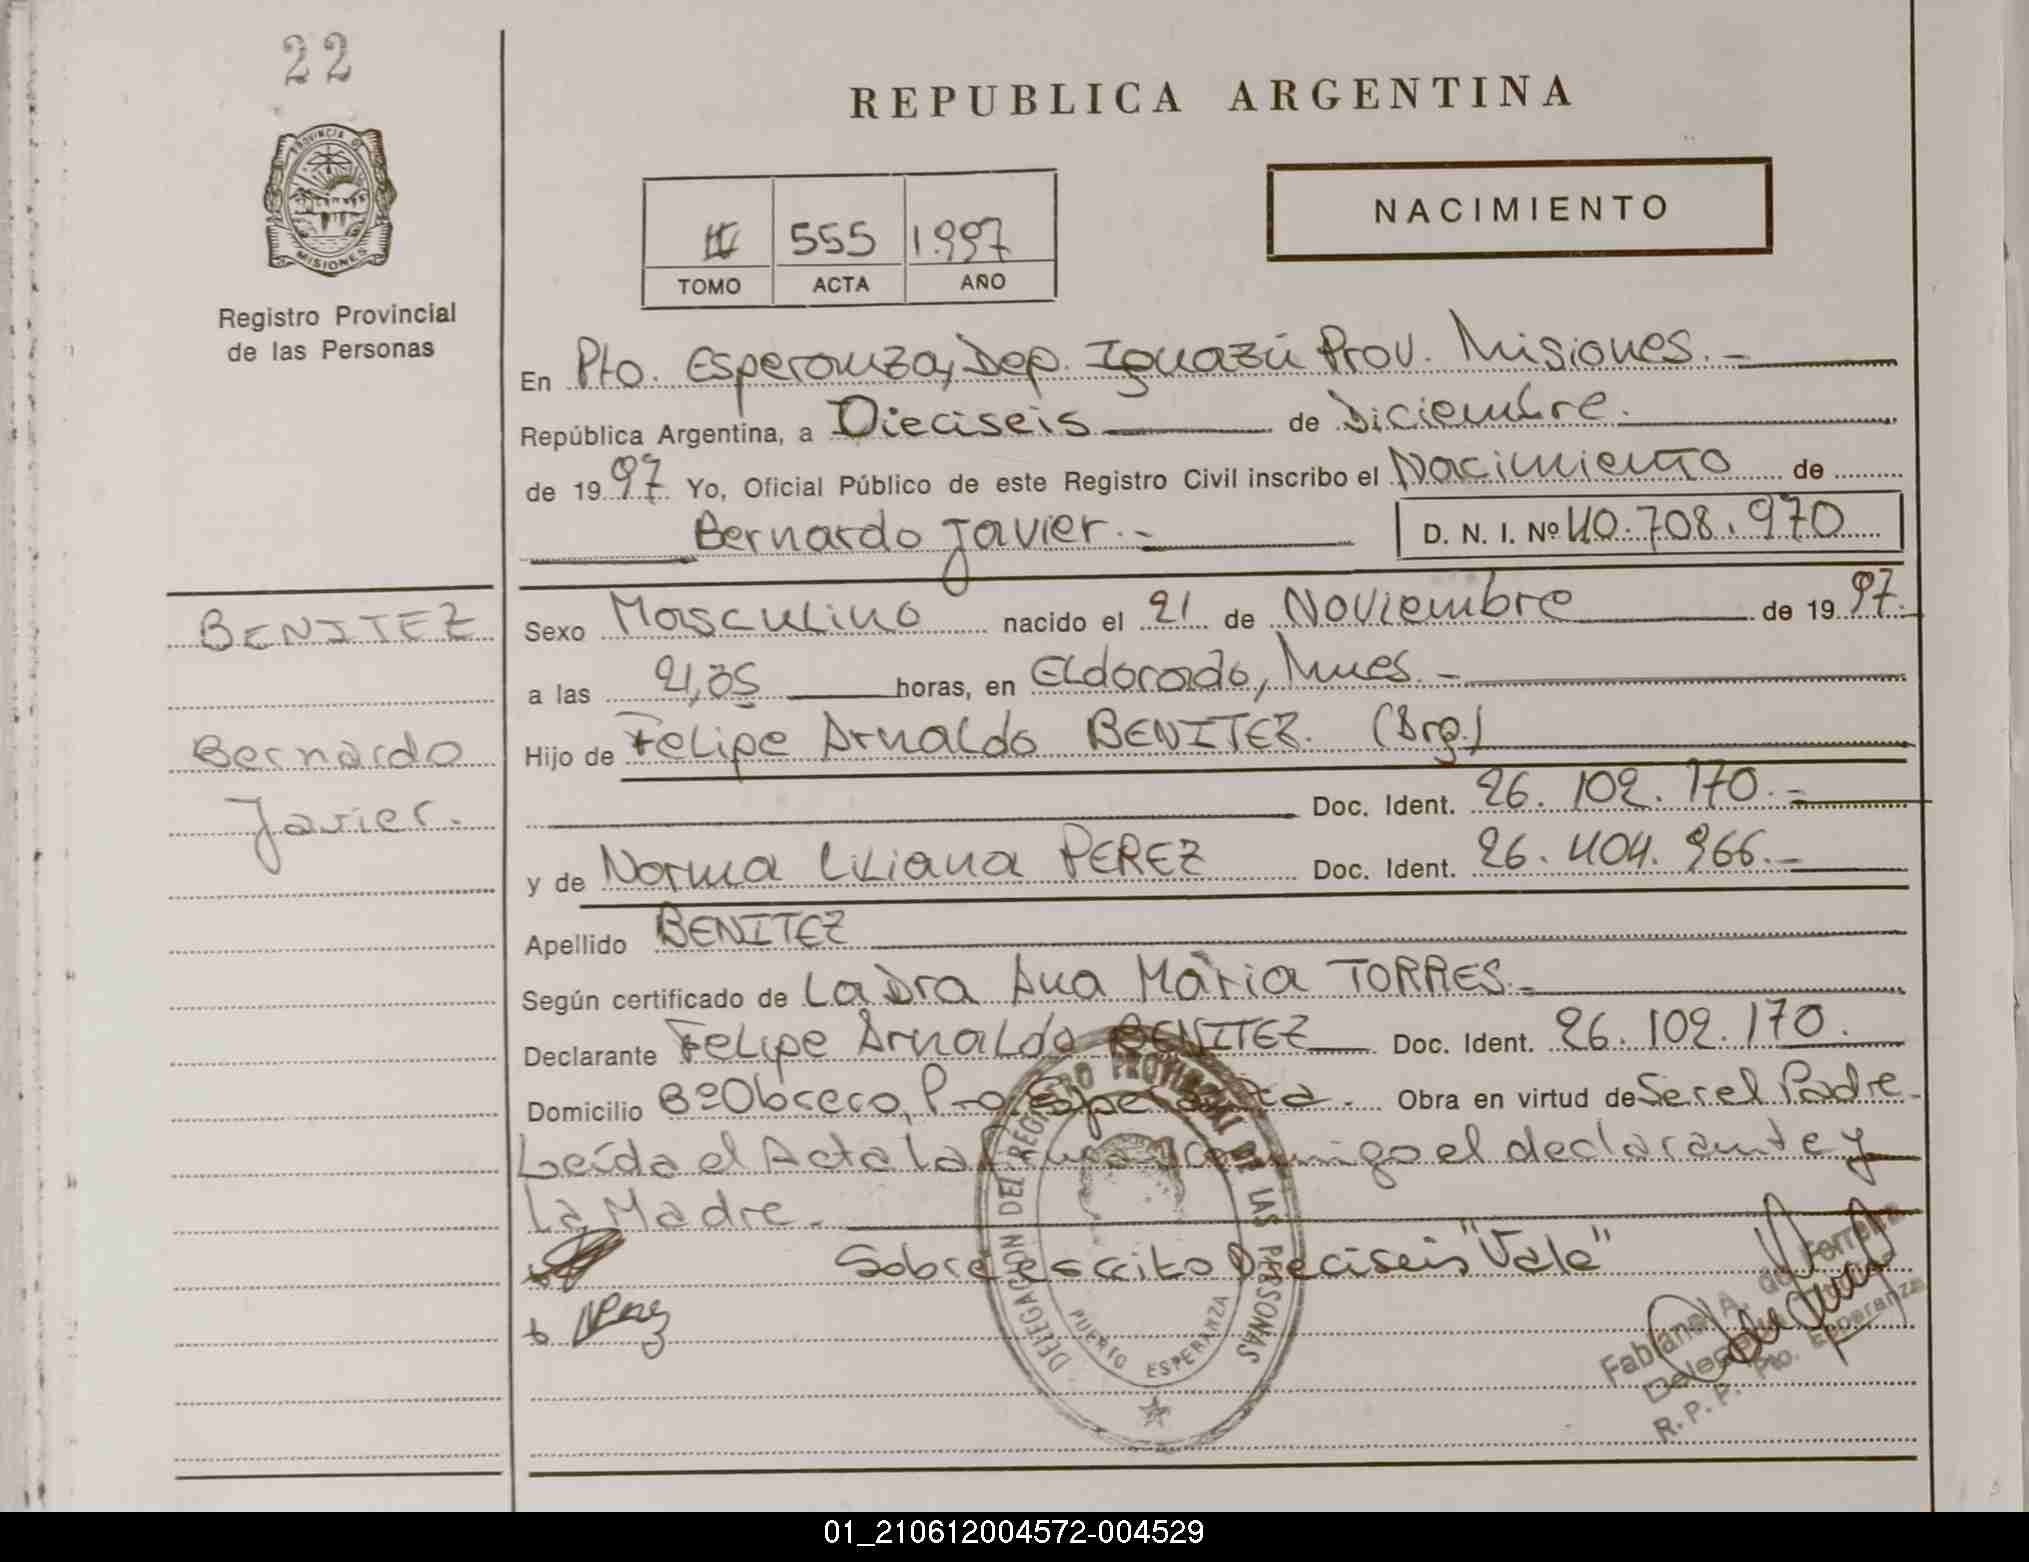 22
REPUBLICA ARGENTINA
PROVINCIA DE
MISIONES
NACIMIENTO
555 1.997
TOMO ACTA AÑO
Registro Provincial
de las Personas
En Pto. Esperanza, Dep. Iguazú Prov. Misiones.-
República Argentina, a Dieciseis de Diciembre.
de 1997 Yo, Oficial Público de este Registro Civil inscribo el Nacimiento de
Bernardo Javier.- D. N. I. Nº 40.708.970
BENITEZ
Sexo Masculino nacido el 21 de Noviembre de 1997.-
a las 21,05 horas, en Eldorado, Mnes.-
Bernardo
Hijo de Felipe Arnaldo BENITEZ. (Arg.)
Javier.
Doc. Ident. 26.102.170.-
y de Norma Liliana PEREZ Doc. Ident. 26.404.966.-
Apellido BENITEZ
Según certificado de La Dra Ana Maria TORRES.-
Declarante Felipe Arnaldo BENITEZ Doc. Ident. 26.102.170.
Domicilio Bº Obrero, Pto. Esperanza. Obra en virtud de Ser el Padre.-
Leída el Acta la Firma conmigo el declarante y
La Madre.
Sobre escrito Dieciseis "Vale"
DELEGACION DEL REGISTRO PROVINCIAL DE LAS PERSONAS
PUERTO ESPERANZA
Fabiana A. de
R. P. P. Pto. Esperanza
01_210612004572-004529